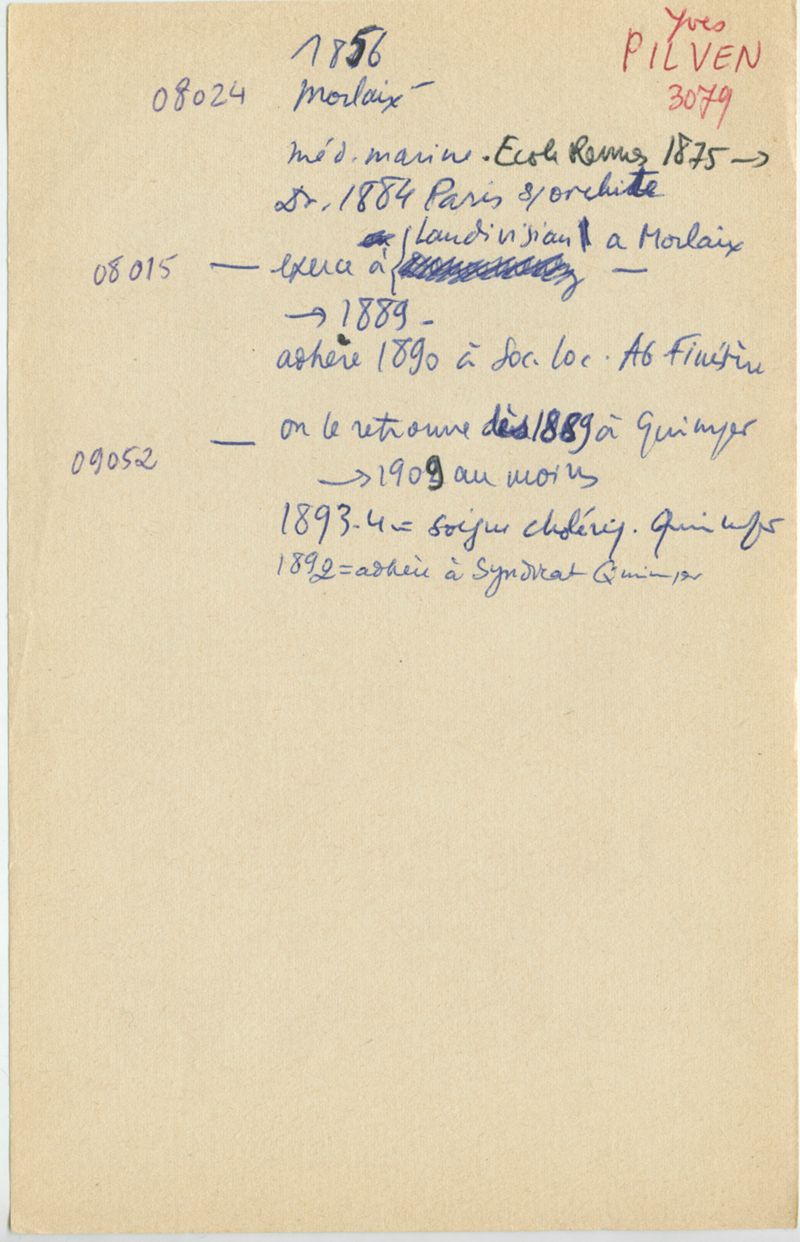 Yves
PILVEN
3079
1856
08024 Morlaix
méd. marine. Ecole Rennes 1875 →
Dr. 1884 Paris s/orchite
Landivisiau a Morlaix
08015 — exerce à —
→ 1889 -
adhère 1890 à Soc. Loc. AG Finistère
— on le retrouve dès 1889 à Quimper
09052 → 1909 au moins
1893-4 = soigne cholériq. Quimper
1892 = adhère à Syndicat Quimper